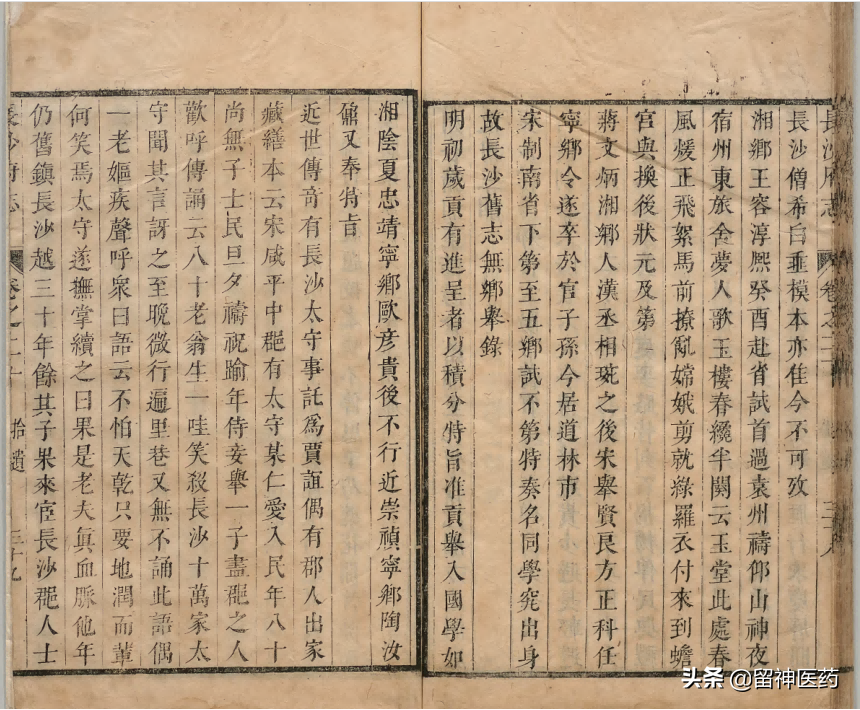 長沙府志 卷之二十 三十八
長沙僧希白重模本亦佳今不可攷
湘鄉王容淳熙癸酉赴省試首過袁州禱仰山神夜
宿州東旅舍夢人歌玉樓春纔半闋云玉堂此處春
風煖正飛絮馬前撩亂嫦娥剪就綠羅衣付來到蟾
宮與換後狀元及第
蔣文炳湘鄉人漢丞相琬之後宋舉賢良方正科任
寧鄉令遂卒於官子孫今居道林市
宋制南省下第至五鄉試不第特奏名同學究出身
故長沙舊志無鄉舉錄
明初歲貢有進呈者以積分特旨准貢舉入國學如
湘陰夏忠靖寧鄉歐彥貴後不行近崇禎寧鄉陶汝
鼐又奉特旨
近世傳奇有長沙太守事託爲賈誼偶有郡人出家
藏繕本云宋咸平中郡有太守某仁愛入民年八十
尚無子士民旦夕禱祝踰年侍妾舉一子盡郡之人
歡呼傳誦云八十老翁生一哇笑殺長沙十萬家太
守聞其言訝之至晚微行遍里巷又無不誦此語偶
一老嫗疾聲呼衆曰語云不怕天乾只要地潤而輩
何笑焉太守遂撫掌續之曰果是老夫眞血脈他年
仍舊鎭長沙越三十年餘其子果來宦長沙郡人士
長沙府志 卷之二十 拾遺 三十九
头条 @留神医药